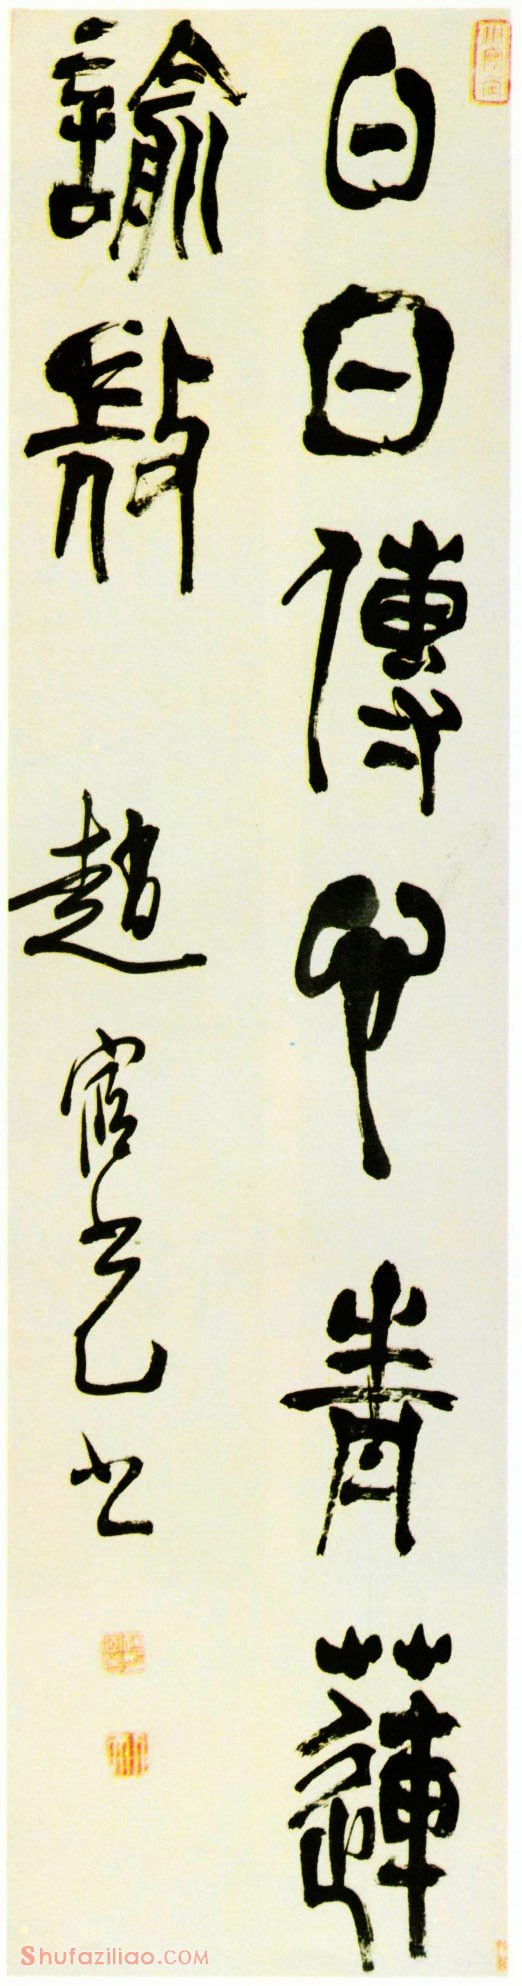 白日傳心青蓮
諭𢼸 趙宧光書
Shufaziliao.COM